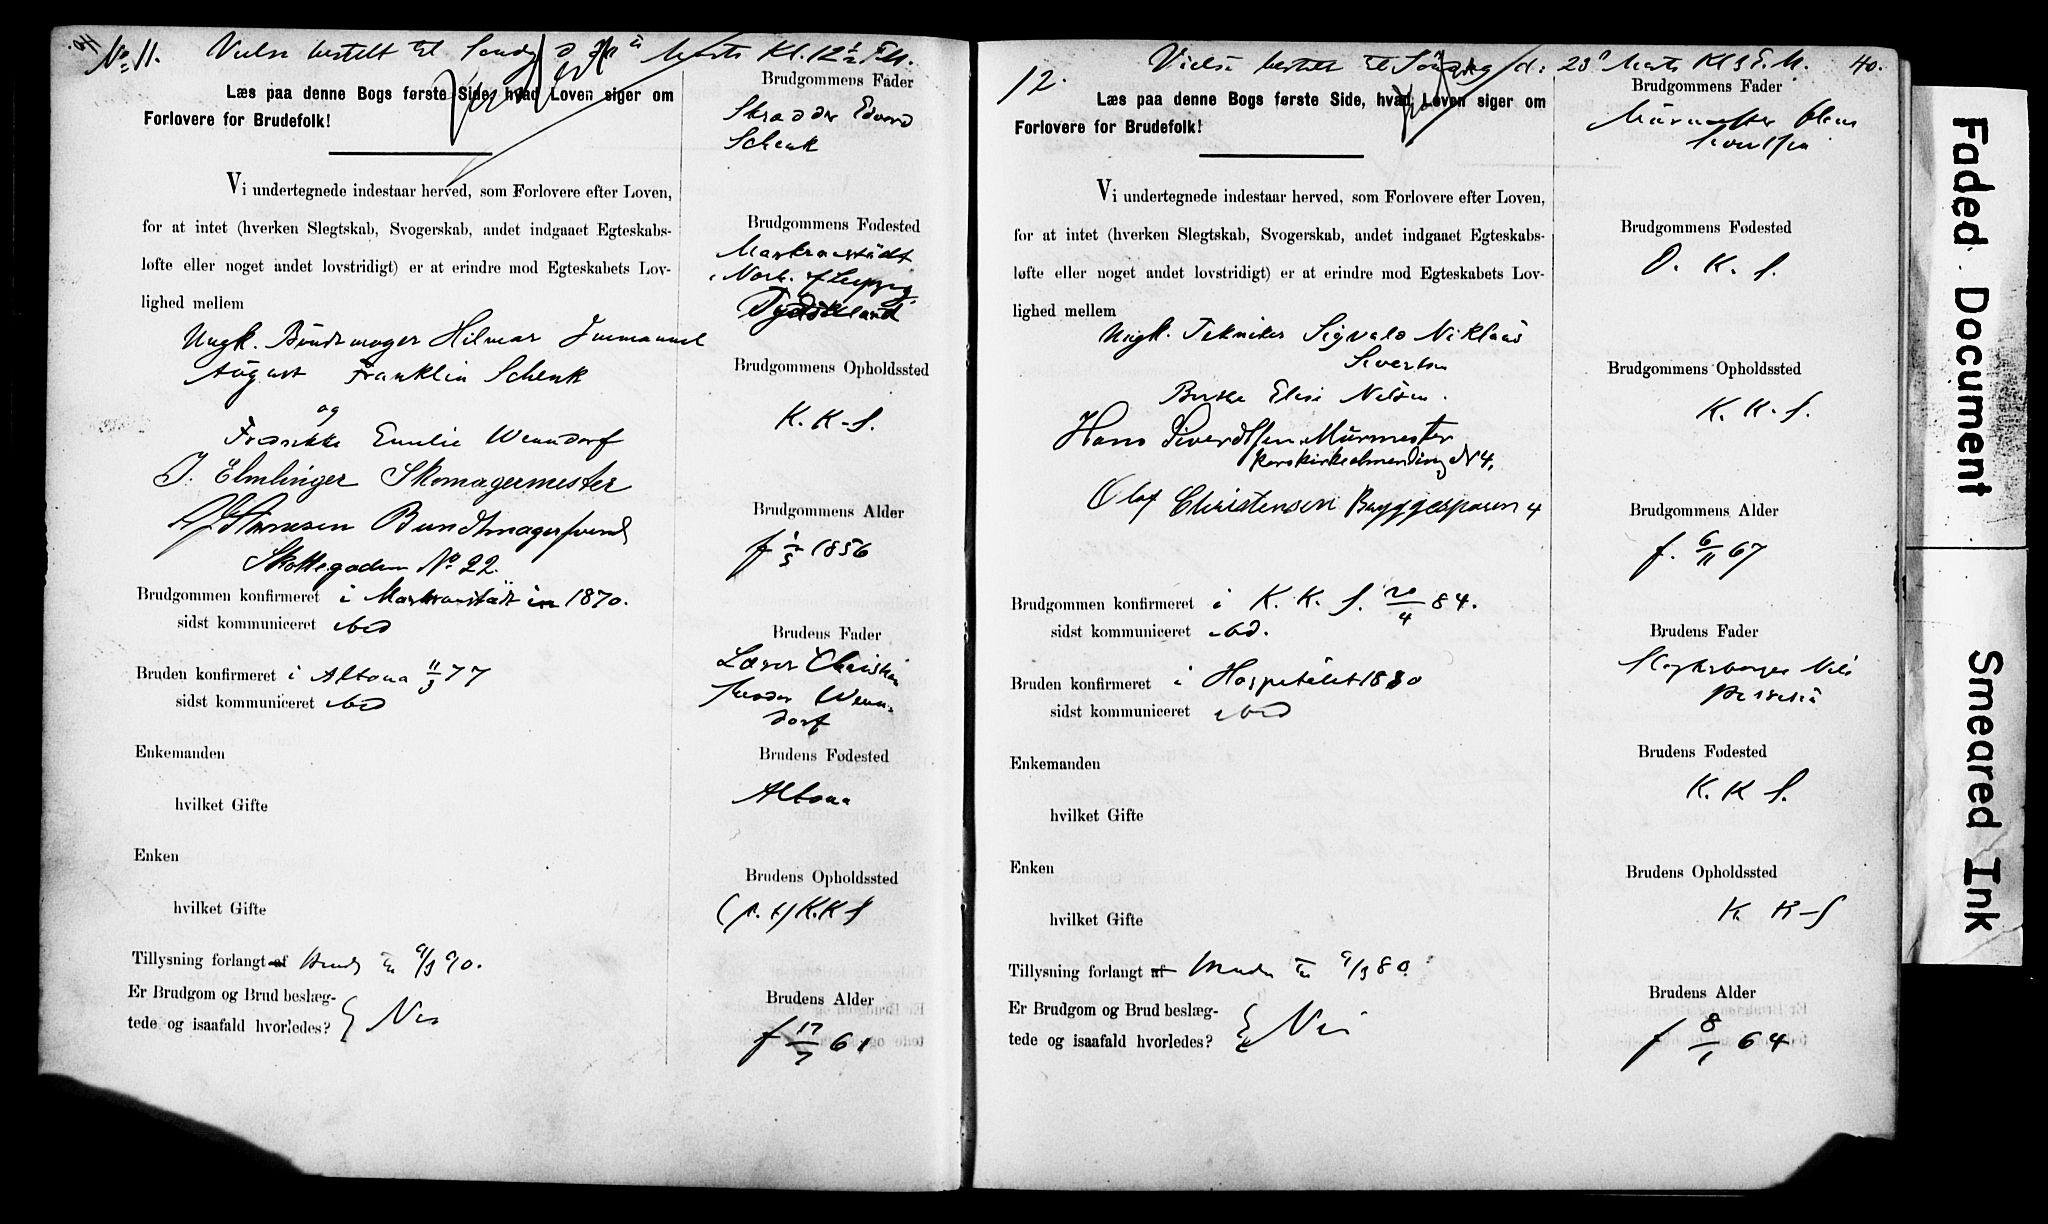 No 11. Vielse bestilt til Søndag d Marts Kl. 12½ F.M.
Læs paa denne Bogs første Side, hvad Loven siger om
Forlovere for Brudefolk!
Vi undertegnede indestaar herved, som Forlovere efter Loven,
for at intet (hverken Slegtskab, Svogerskab, andet indgaaet Egteskabs-
løfte eller noget andet lovstridigt) er at erindre mod Egteskabets Lov-
lighed mellem
Ungk. Bundtmager Hilmar Immanuel
August Franklin Schenk
og
Fredrikke Emilie Wenndorf
J. Elmlinger Skomagermester
Bundtmagersvend
Skottegaden No 22.
Brudgommen konfirmeret i Markranstädt in 1870.
sidst kommuniceret ibid
Bruden konfirmeret i Altona 11/3 77
sidst kommuniceret ibid
Enkemanden
hvilket Gifte
Enken
hvilket Gifte
Tillysning forlangt af 9/3 90.
Er Brudgom og Brud beslæg-
tede og isaafald hvorledes? Nei
Brudgommens Fader
Skrædder Edvard
Schenk
Brudgommens Fødested
Markranstädt
Leipzig
Tydskland
Brudgommens Opholdssted
K. K-S.
Brudgommens Alder
f 1/5 1856
Brudens Fader
Lærer Christian
Wenn-
dorf
Brudens Fødested
Altona
Brudens Opholdssted
(p. t) K. K S
Brudens Alder
f 17/7 61
12. Vielse bestilt til Søndag d: 23d Marts Kl 3 E. M. 40.
Læs paa denne Bogs første Side, hvad Loven siger om
Forlovere for Brudefolk!
Vi undertegnede indestaar herved, som Forlovere efter Loven,
for at intet (hverken Slegtskab, Svogerskab, andet indgaaet Egteskabs-
løfte eller noget andet lovstridigt) er at erindre mod Egteskabets Lov-
lighed mellem
Ungk. Tekniker Sigvald Niklaus
Sivertsen
Berthe Elisi Nilsen.
Hans Siverdtsen Murmester
Korskirkealmending No 4.
Olaf Christensen Bryggesporen 4
Brudgommen konfirmeret i K. K. S. 20/4 84.
sidst kommuniceret ibd.
Bruden konfirmeret i Hospitalet 1880
sidst kommuniceret ibid
Enkemanden
hvilket Gifte
Enken
hvilket Gifte
Tillysning forlangt af 9/3 80.
Er Brudgom og Brud beslæg-
tede og isaafald hvorledes? Nei
Brudgommens Fader
Murmester Hans
Sivertsen
Brudgommens Fødested
D. K. S.
Brudgommens Opholdssted
K. K-S.
Brudgommens Alder
f. 6/11 67
Brudens Fader
Nils
Brudens Fødested
K. K S.
Brudens Opholdssted
K. K-S
Brudens Alder
f 8/1 64
Faded Document
Smeared Ink